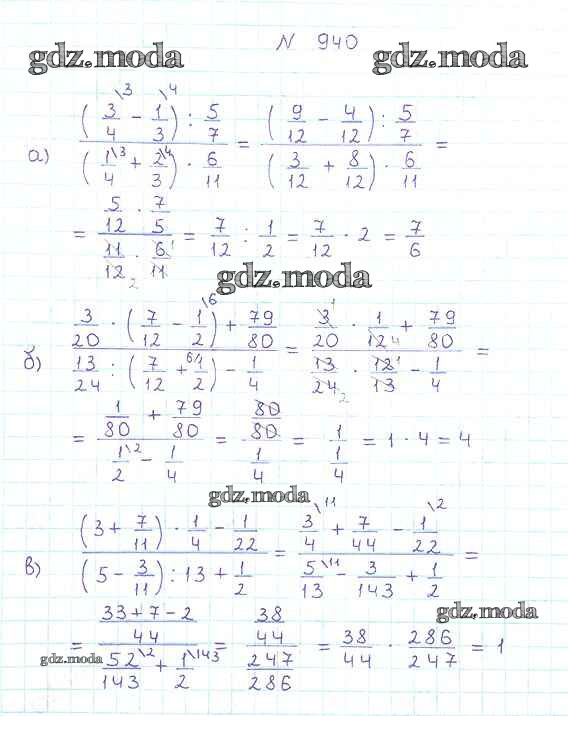 N 940
gdz.moda gdz.moda
а) ((3/4\3 - 1/3\4) : 5/7) / ((1/4\3 + 2/3\4) · 6/11) = ((9/12 - 4/12) : 5/7) / ((3/12 + 8/12) · 6/11) =
= (5/12 · 7/5) / (11/12 2 · 6 1/11) = 7/12 : 1/2 = 7/12 · 2 = 7/6
gdz.moda
б) (3/20 · (7/12 - 1/2\6) + 79/80) / (13/24 : (7/12 + 6/1/2) - 1/4) = (3 1/20 · 1/12 4 + 79/80) / (13/24 2 · 12 1/13 - 1/4) =
= (1/80 + 79/80) / (1/2\2 - 1/4) = (80/80) / (1/4) = 1 / (1/4) = 1 · 4 = 4
gdz.moda
в) ((3 + 7/11) · 1/4 - 1/22) / ((5 - 3/11) : 13 + 1/2) = (3/4\11 + 7/44 - 1/22\2) / (5/13\11 - 3/143 + 1/2) =
gdz.moda
= ((33 + 7 - 2)/44) / (52/143\2 + 1/2\143) = (38/44) / (247/286) = 38/44 · 286/247 = 1
gdz.moda